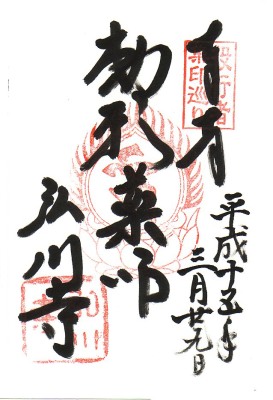 役行者
奉拝
平成十五年
三月廿九日
薬師
弘川寺